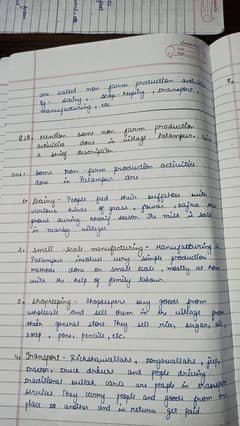 are called non farm production acti
Eg- dairy, shop-keeping, transport,
manufacturing, etc.
Q2. Mention some non farm production
activities done in village Palampur. 
a brief description.
ans- Some non-farm production activities
done in Palampur are
1. Dairy - People feed their buffalos with
various kinds of grass, jowar, bajra 
grows during rainy season. The milk is sold
in nearby villages
2. Small-scale manufacturing - Manufacturing in
Palampur involves very simple production
methods done on small scale, mostly at home
with the help of family labour.
3. shopkeeping - shopkeepers buy goods from
wholesale and sell them in the village from
their general store They sell rice, sugar, oil,
soap, pens, pencils, etc.
4. Transport - Rickshawallahs, tongawallahs, jeep,
tractor, truck drivers and people driving
traditional bullock carts are people in transport
services They carry people and goods from one
place to another and in return get paid.